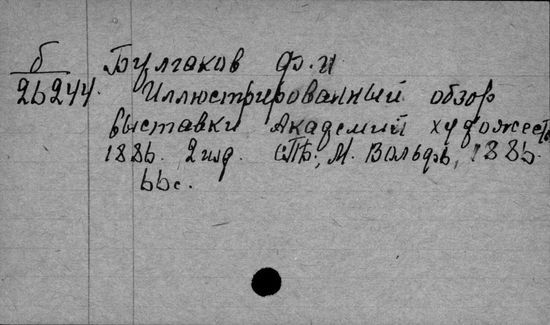 б
26244.
Булгаков Ф. И
Иллюстрированный обзор
выставки Академии художеств
1886. 2 изд. СПб., М. Вольф, 1886.
66 с.